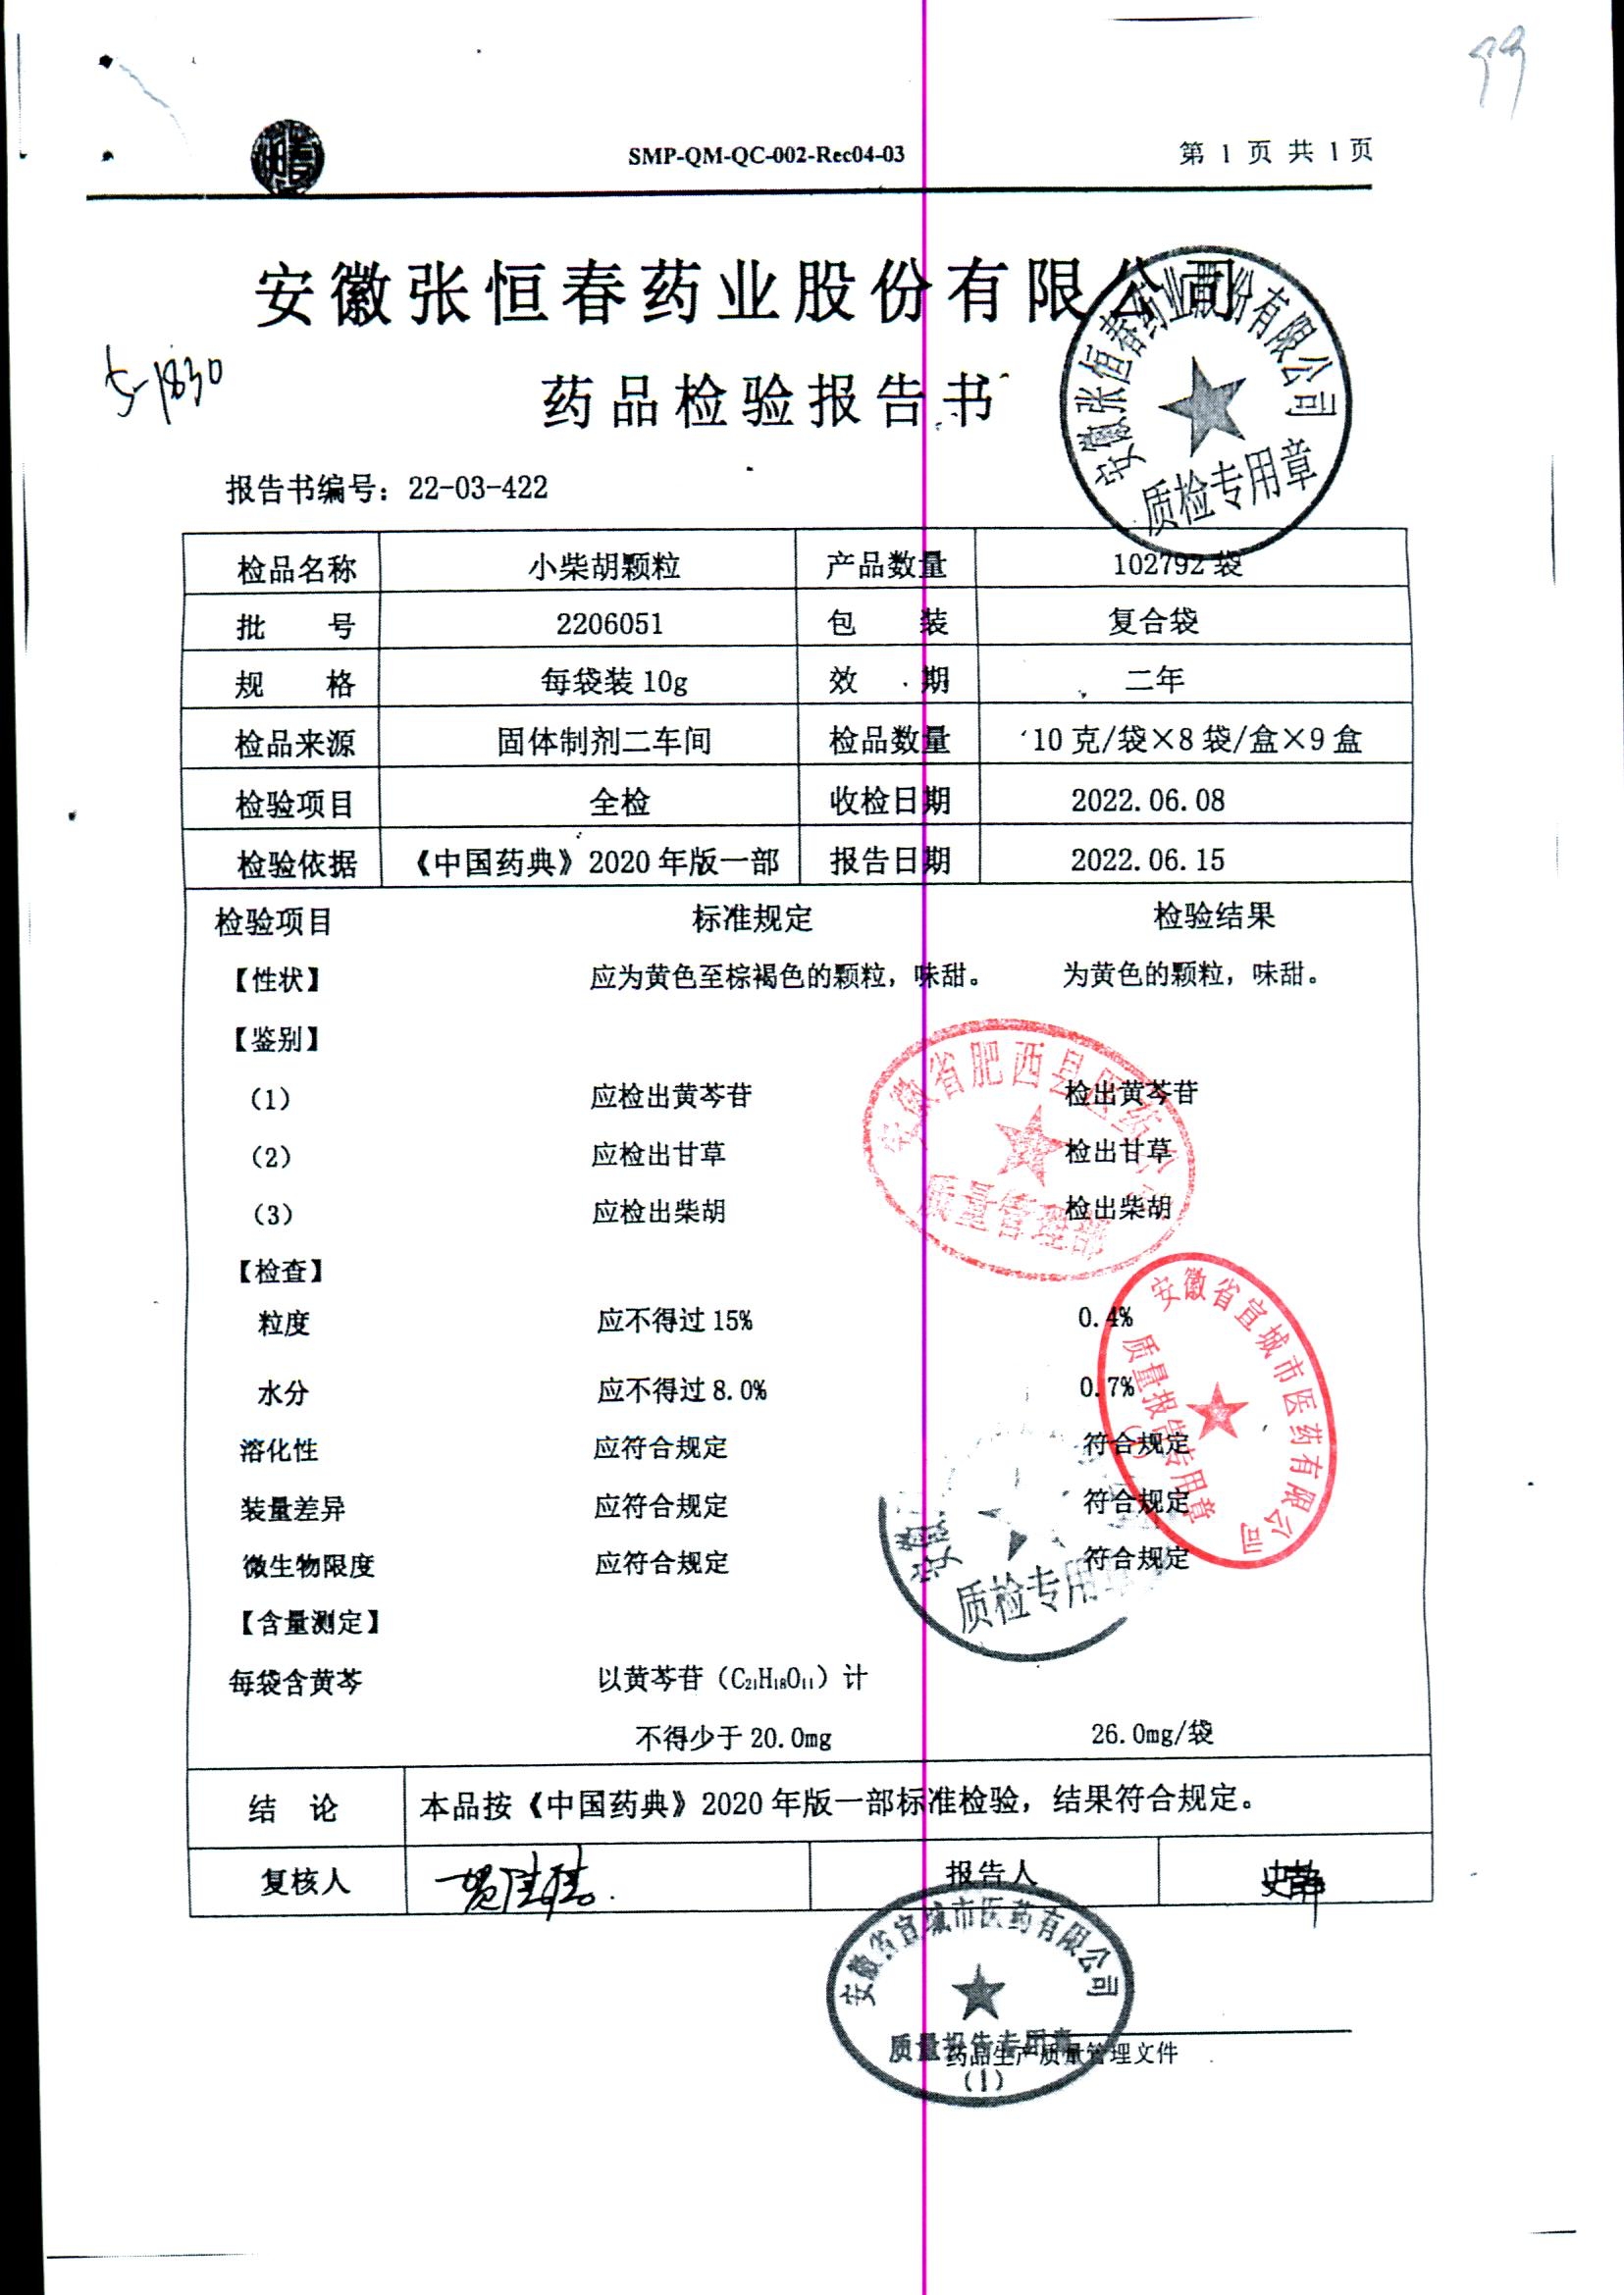 SMP-QM-QC-002-Rec04-03
第 1 页 共 1 页
安徽张恒春药业股份有限公司
5-1830
药品检验报告书
安徽张恒春药业股份有限公司
质检专用章
报告书编号：22-03-422
检品名称 小柴胡颗粒 产品数量 102792 袋
批 号 2206051 包 装 复合袋
规 格 每袋装 10g 效 期 二年
检品来源 固体制剂二车间 检品数量 10 克/袋×8 袋/盒×9 盒
检验项目 全检 收检日期 2022.06.08
检验依据 《中国药典》2020 年版一部 报告日期 2022.06.15
检验项目 标准规定 检验结果
【性状】 应为黄色至棕褐色的颗粒，味甜。 为黄色的颗粒，味甜。
【鉴别】
（1） 应检出黄芩苷 检出黄芩苷
（2） 应检出甘草 检出甘草
（3） 应检出柴胡 检出柴胡
安徽省肥西县医药公
质量管理部
【检查】
粒度 应不得过 15% 0.4%
水分 应不得过 8.0% 0.7%
溶化性 应符合规定 符合规定
装量差异 应符合规定 符合规定
微生物限度 应符合规定 符合规定
安徽省宣城市医药有限公司
质量报告专用章
(1)
安徽
质检专用章
【含量测定】
每袋含黄芩 以黄芩苷（C₂₁H₁₈O₁₁）计
不得少于 20.0mg 26.0mg/袋
结 论 本品按《中国药典》2020 年版一部标准检验，结果符合规定。
复核人 报告人
安徽省宣城市医药有限公司
质量报告专用章
(1)
药品生产质量管理文件